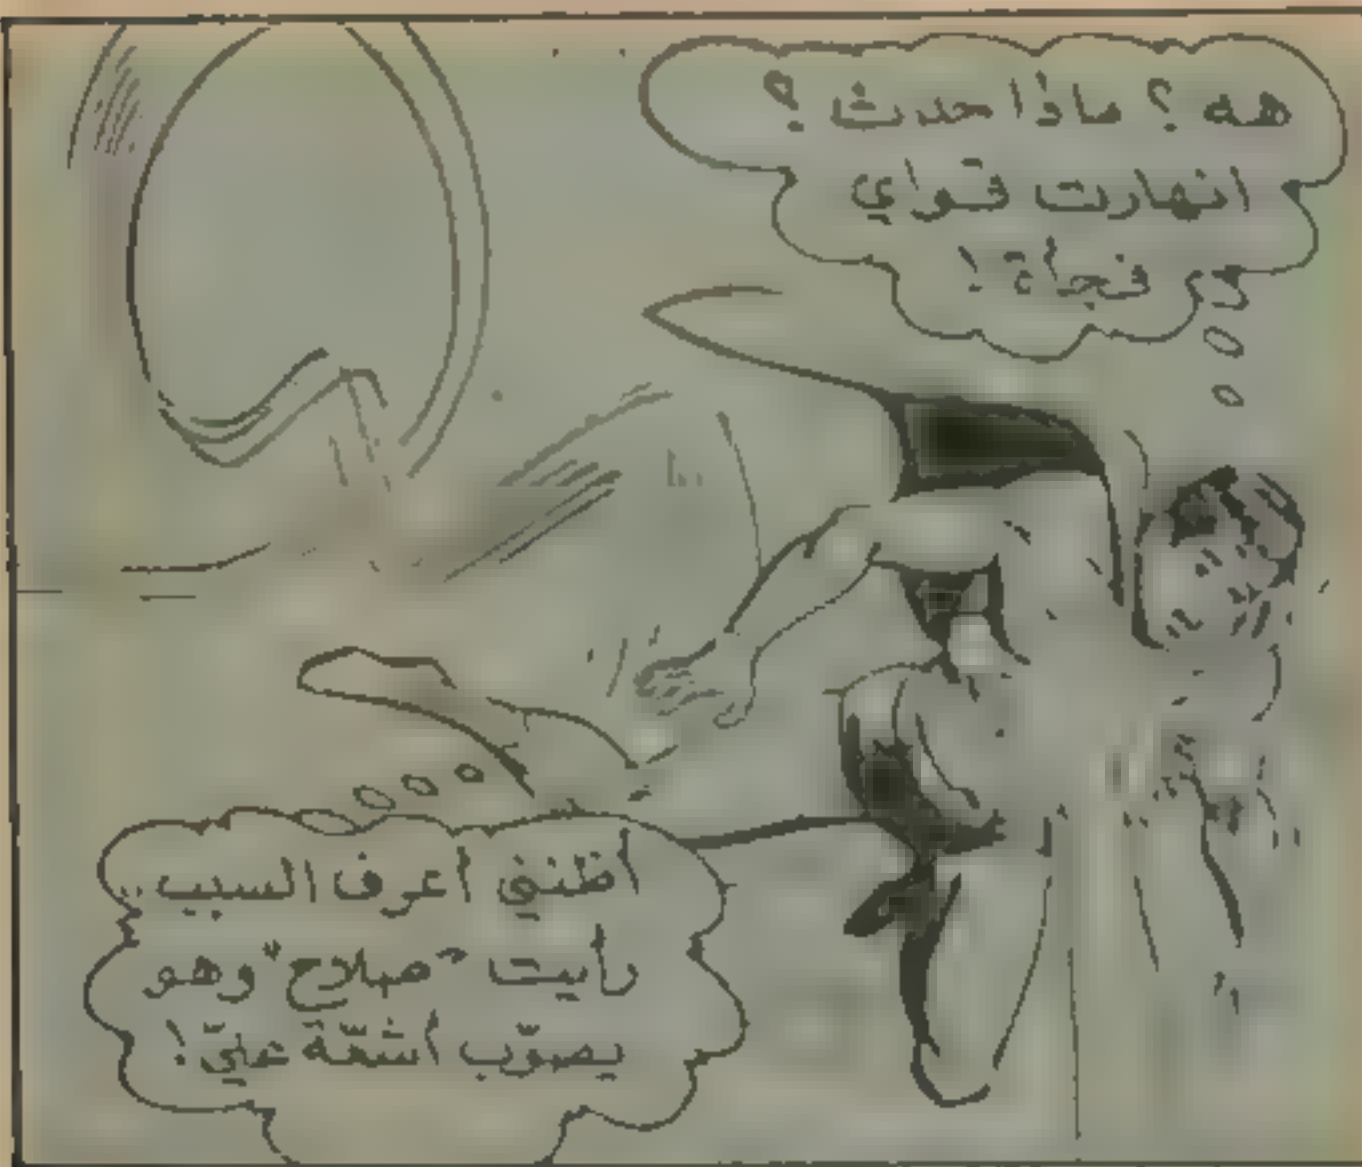 هه ؟ ماذا حدث ؟
انهارت قواي
فجأة !
أظنني أعرف السبب ..
رأيت "صلاح" وهو
يصوّب أشعّة عليّ !